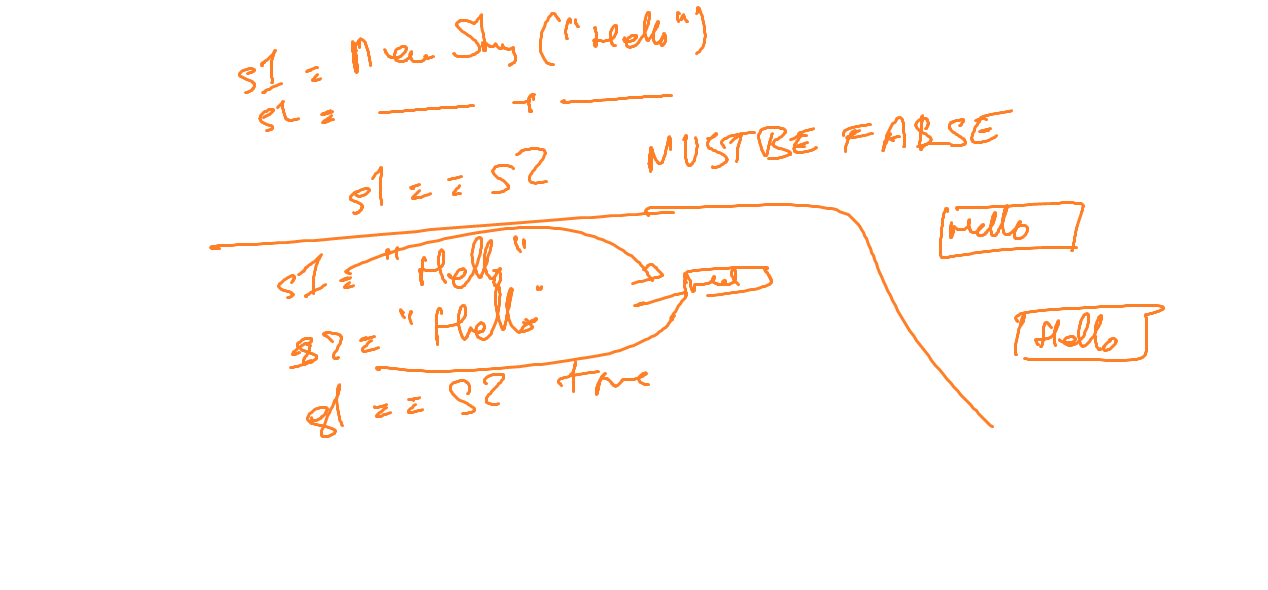 s1 = New String ("Hello")
s2 = —— " ——
s1 == s2
MUST BE FALSE
Hello
s1 = "Hello"
s2 = "Hello"
Hello
s1 == s2 true